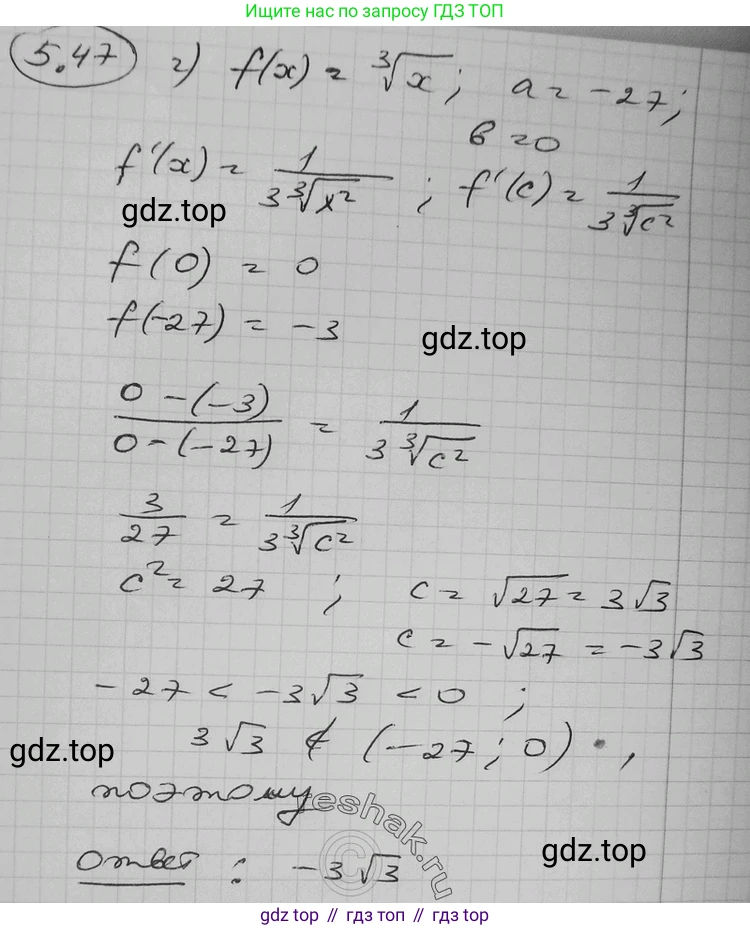 Ищите нас по запросу ГДЗ ТОП
5.47 г) f(x) = ∛x; a = -27;
b = 0
f'(x) = 1/(3∛x²) ; f'(c) = 1/(3∛c²)
gdz.top
f(0) = 0
f(-27) = -3
gdz.top
(0-(-3))/(0-(-27)) = 1/(3∛c²)
3/27 = 1/(3∛c²)
c² = 27 ; c = √27 = 3√3
c = -√27 = -3√3
-27 < -3√3 < 0 ;
3√3 ∉ (-27; 0),
gdz.top
поэтому
reshak.ru
Ответ: -3√3
gdz.top
gdz.top // гдз топ // gdz.top